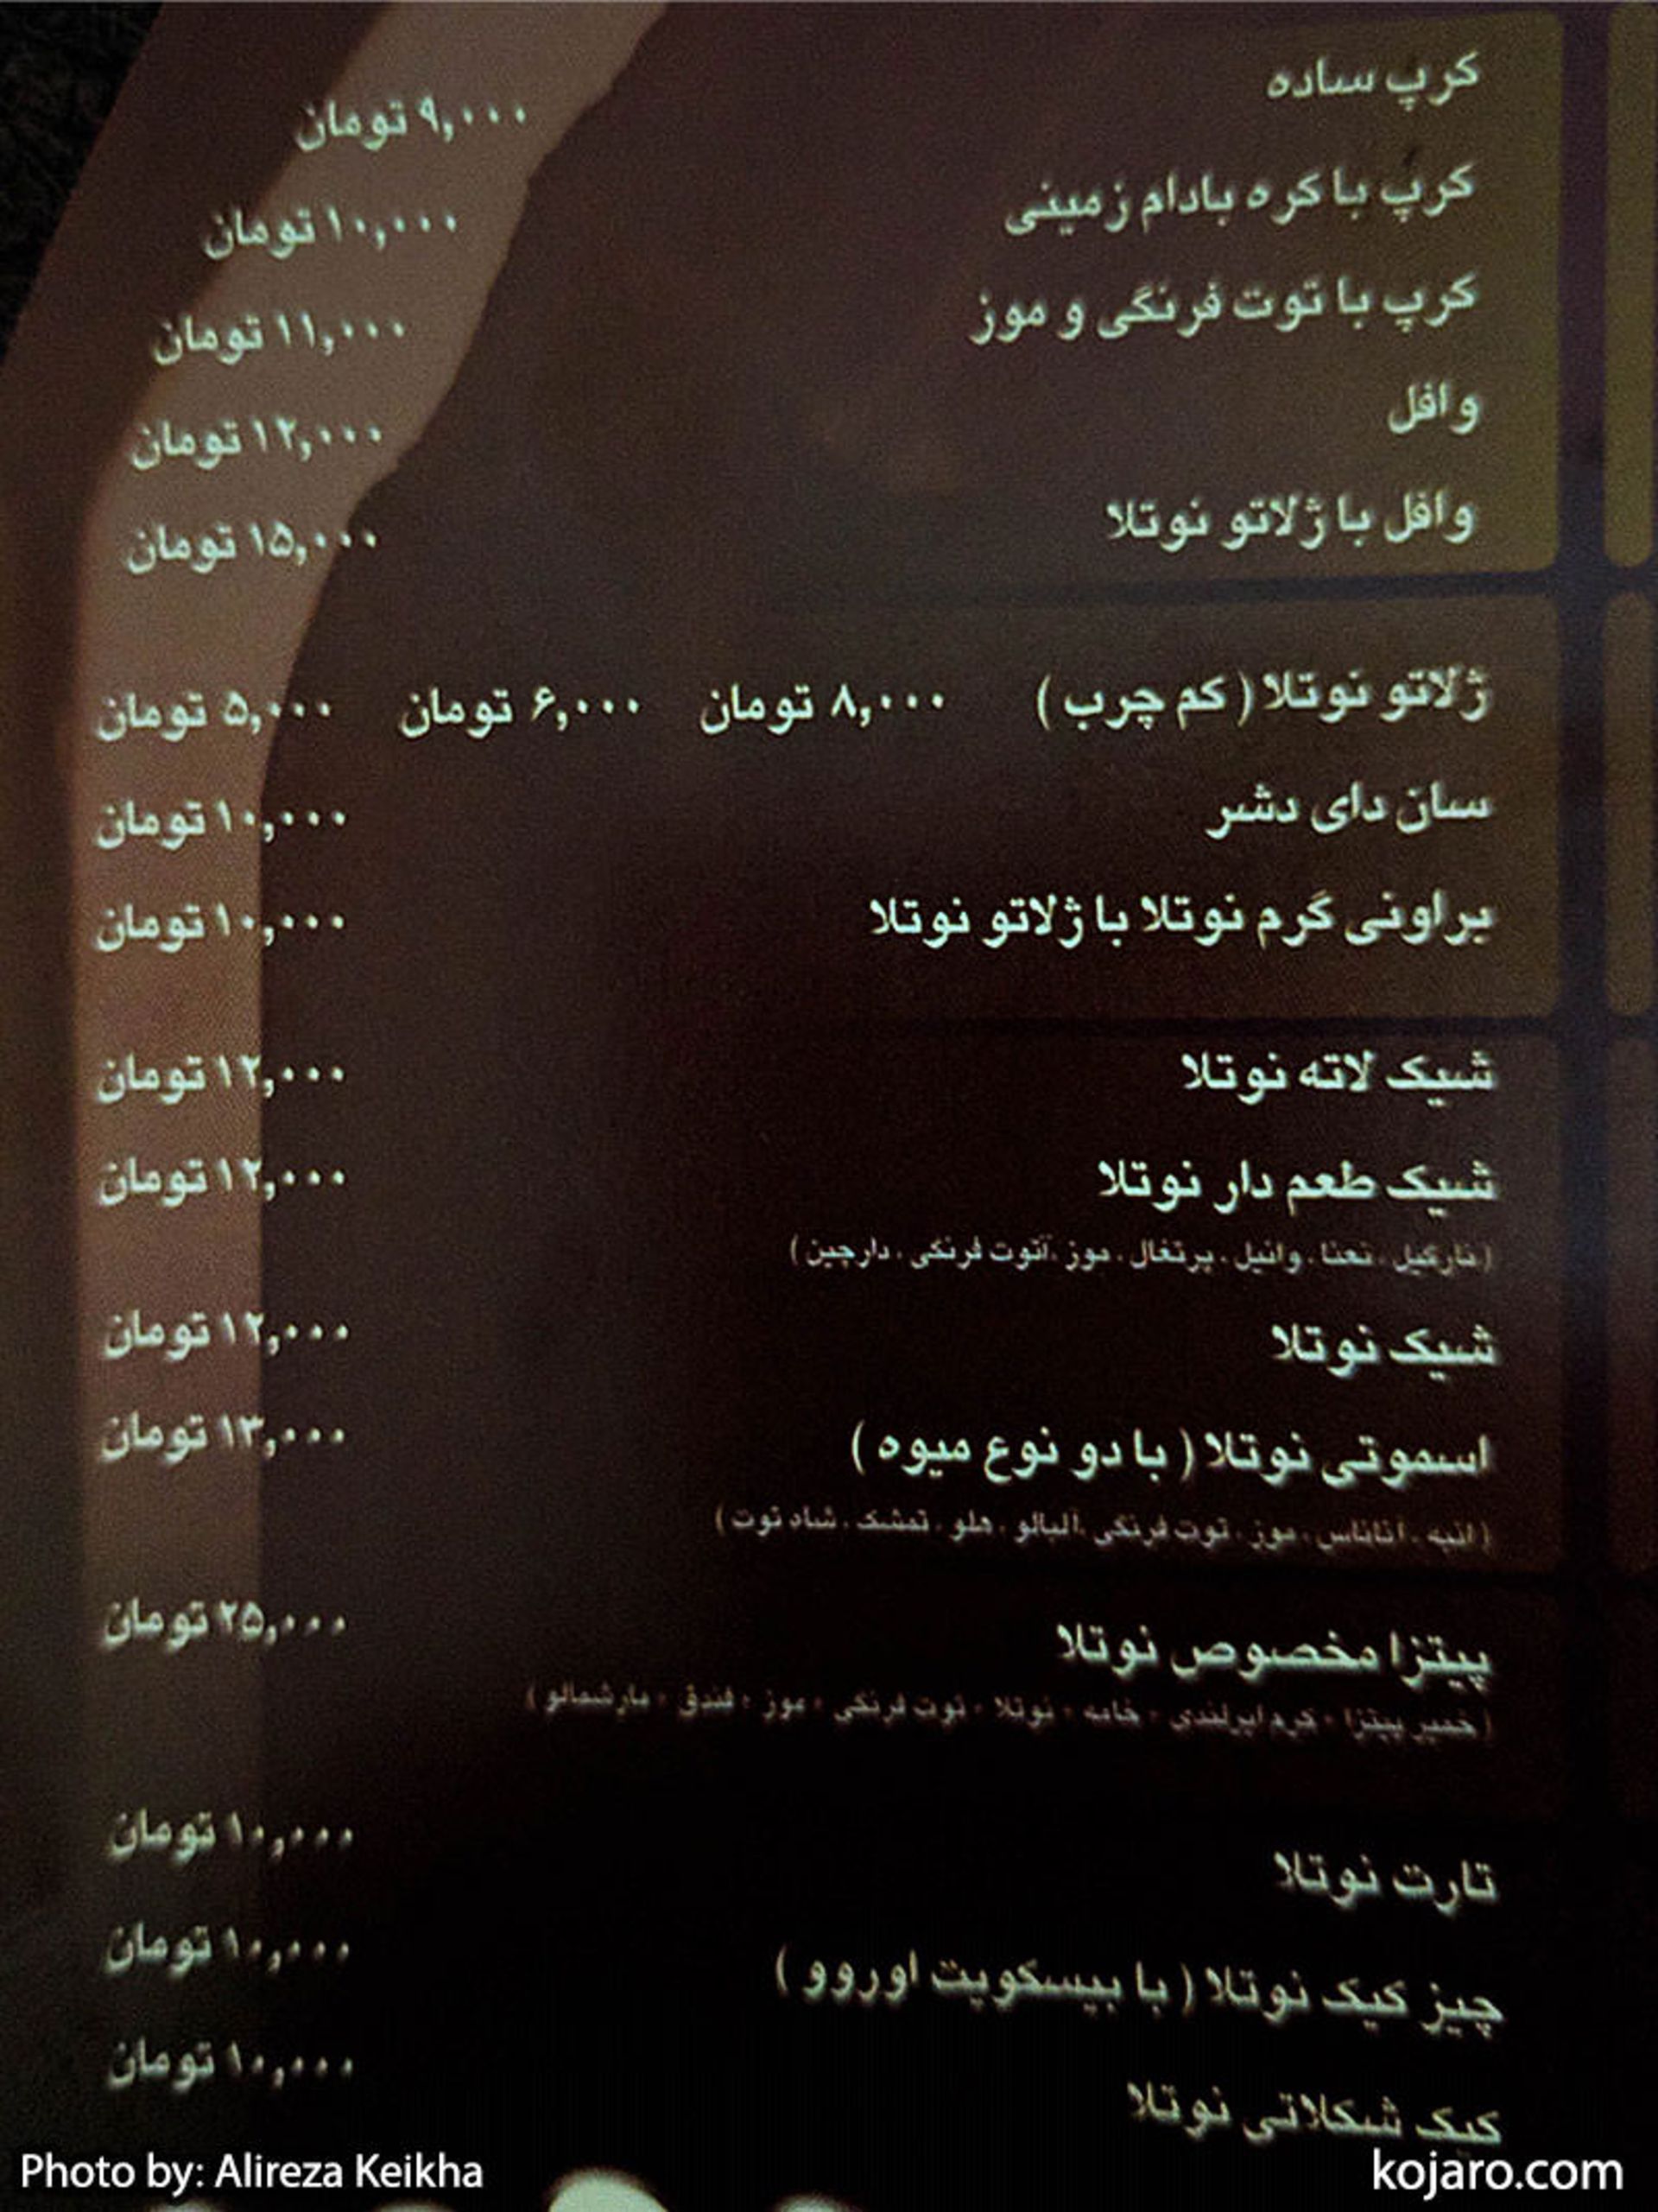 کرپ ساده ۹,۰۰۰ تومان
کرپ با کره بادام زمینی ۱۰,۰۰۰ تومان
کرپ با توت فرنگی و موز ۱۱,۰۰۰ تومان
وافل ۱۲,۰۰۰ تومان
وافل با ژلاتو نوتلا ۱۵,۰۰۰ تومان
ژلاتو نوتلا ( کم چرب ) ۸,۰۰۰ تومان ۶,۰۰۰ تومان ۵,۰۰۰ تومان
سان دای دشر ۱۰,۰۰۰ تومان
براونی گرم نوتلا با ژلاتو نوتلا ۱۰,۰۰۰ تومان
شیک لاته نوتلا ۱۲,۰۰۰ تومان
شیک طعم دار نوتلا ۱۲,۰۰۰ تومان
( نارگیل . نعنا . وانیل . پرتغال . موز .آتوت فرنگی . دارچین )
شیک نوتلا ۱۲,۰۰۰ تومان
اسموتی نوتلا ( با دو نوع میوه ) ۱۳,۰۰۰ تومان
( انبه . آناناس . موز . توت فرنگی .آلبالو . هلو . تمشک . شاد توت )
پیتزا مخصوص نوتلا ۲۵,۰۰۰ تومان
( خمیر پیتزا + کرم ایرلندی + خامه + نوتلا + توت فرنگی + موز + فندق + مارشمالو )
تارت نوتلا ۱۰,۰۰۰ تومان
چیز کیک نوتلا ( با بیسکویت اوروو ) ۱۰,۰۰۰ تومان
کیک شکلاتی نوتلا ۱۰,۰۰۰ تومان
Photo by: Alireza Keikha kojaro.com